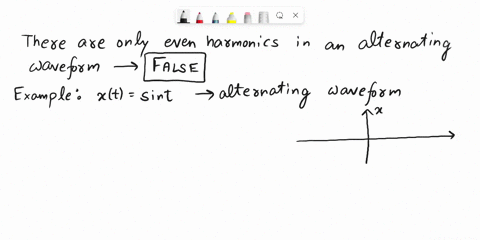 There are only even harmonics in an alternating
waveform → FALSE
Example: x(t) = sint → alternating waveform
x